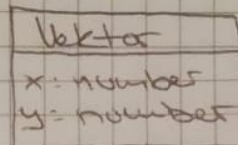 Vektor
x: number
y: number